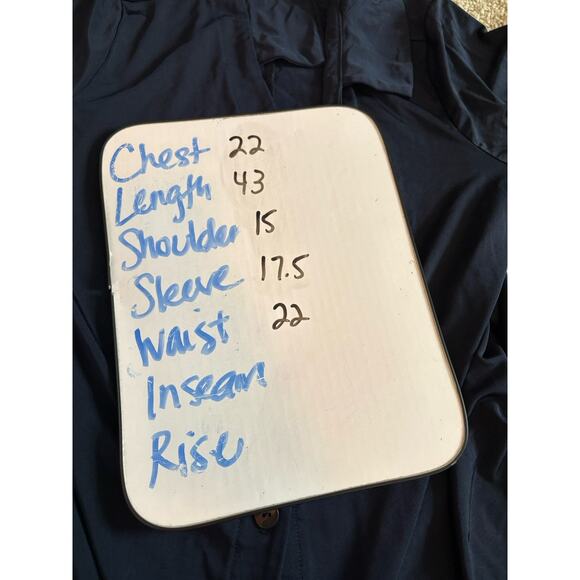 Chest 22
Length 43
Shoulder 15
Sleeve 17.5
Waist 22
Inseam
Rise